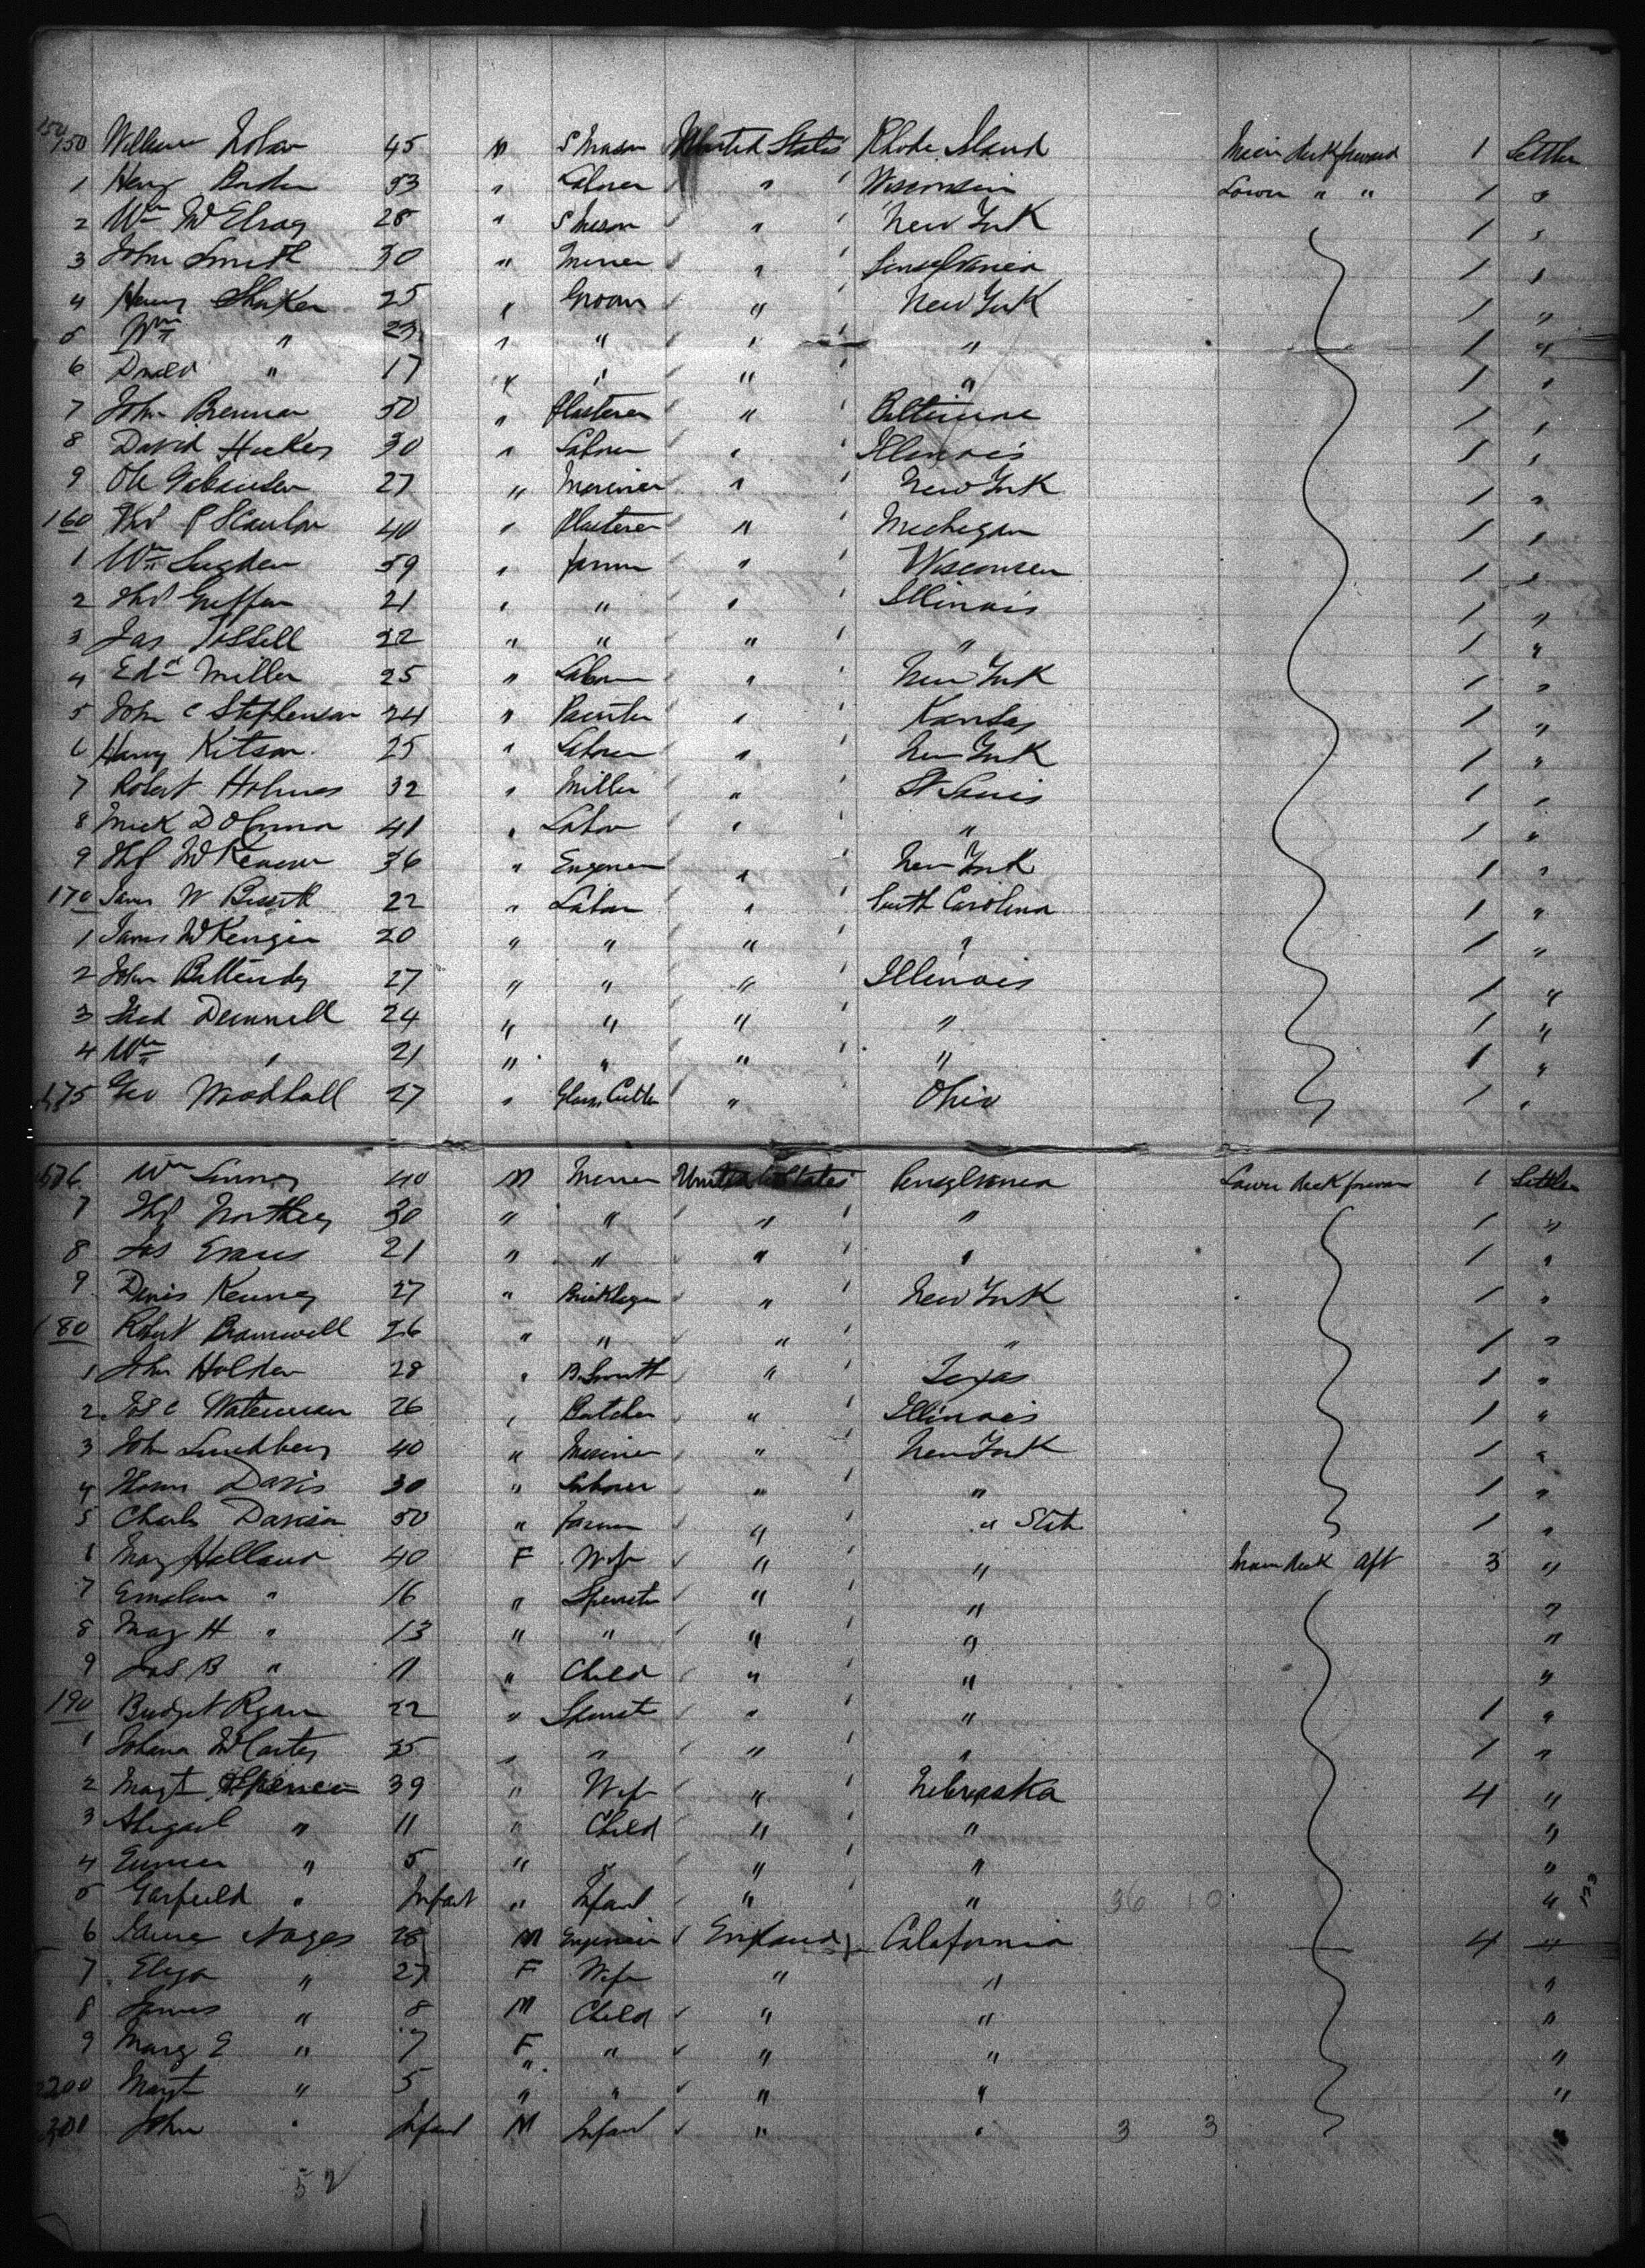 150 William Nolan 45 M S Mason United States Rhode Island Main deck forward 1 Settler
1 Henry 53 " Laborer " Wisconsin Lower " " 1 "
2 Wm McElroy 28 " S Mason " New York 1 "
3 John Smith 30 " Miner " Pensylvania 1 "
4 Henry Shaker 25 " Groom " New York 1 "
5 Wm " 23 " " " " 1 "
6 " 17 " " " " 1 "
7 John Brennan 50 " Plasterer " Baltimore 1 "
8 David Hickey 30 " Laborer " Illinois 1 "
9 Ole 27 " Mariner " New York 1 "
160 Thos P Scanlon 40 " Plasterer " Michigan 1 "
1 Wm Sugden 59 " farmer " Wisconsin 1 "
2 Thos Griffin 21 " " " Illinois 1 "
3 Jas 22 " " " " 1 "
4 Edd Miller 25 " Labour " New York 1 "
5 John C Stephenson 24 " Painter " Kansas 1 "
6 Harry Kitson 25 " Laborer " New York 1 "
7 Robert Holmes 32 " Miller " St Louis 1 "
8 Mick D O Connor 41 " Labor " " 1 "
9 Thos 36 " Engeneer " New York 1 "
170 James W 22 " Labor " South Carolina 1 "
1 James McKenzie 20 " " " " 1 "
2 John 27 " " " Illinois 1 "
3 Fred 24 " " " " 1 "
4 Wm " 21 " " " " 1 "
175 Geo Woodhall 27 " Glass Cutter " Ohio 1 "
176 Wm 40 M Miner United States Pensylvania Lower deck forward 1 Settler
7 Thos Northey 30 " " " " 1 "
8 Jos Evans 21 " " " " 1 "
9 Denis Kenney 27 " Bricklayer " New York 1 "
180 Robert Bramwell 26 " " " " 1 "
1 John Holden 28 " B. Smith " Texas 1 "
2 Jos C Waterman 26 " Butcher " Illinois 1 "
3 John Lundberg 40 " Mariner " New York 1 "
4 Thomas Davis 30 " Laborer " " 1 "
5 Charles Davison 50 " farmer " " State 1 "
6 Mary Holland 40 F Wife " " Main deck Aft 3 "
7 " 16 " Spinster " " "
8 Mary H " 13 " " " " "
9 Jos B " 11 " Child " " "
190 Bridget Ryan 22 " Spinst " " 1 "
1 Johana McCarty 25 " " " " 1 "
2 Margt Spencer 39 " Wife " Nebraska 4 "
3 Abigail " 11 " Child " " "
4 " 5 " " " " "
5 Garfield " Infant " Infant " " 36 10 " 123
6 28 M Engineer England California 4 "
7 Eliza " 27 F Wife " " "
8 James " 8 M Child " " "
9 Mary E " 7 F " " " "
200 Margt " 5 " " " " "
201 John " Infant M Infant " " 3 3 "
52